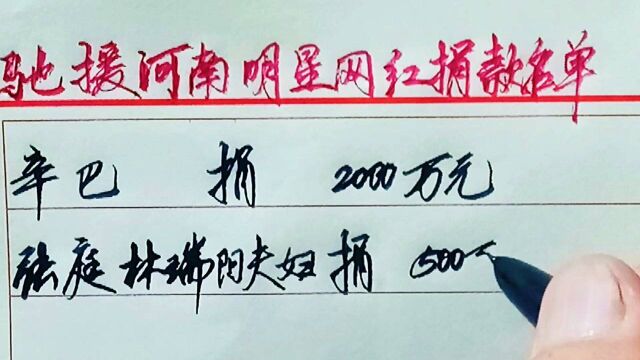 驰援河南明星网红捐款名单
辛巴 捐 2000万元
张庭林瑞阳夫妇捐 500